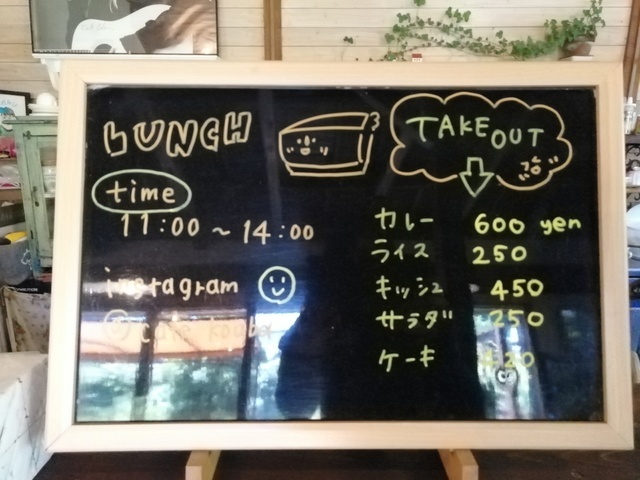 LUNCH
time
11:00 ~ 14:00
instagram
TAKEOUT
カレー 600 yen
ライス 250
キッシュ 450
サラダ 250
ケーキ